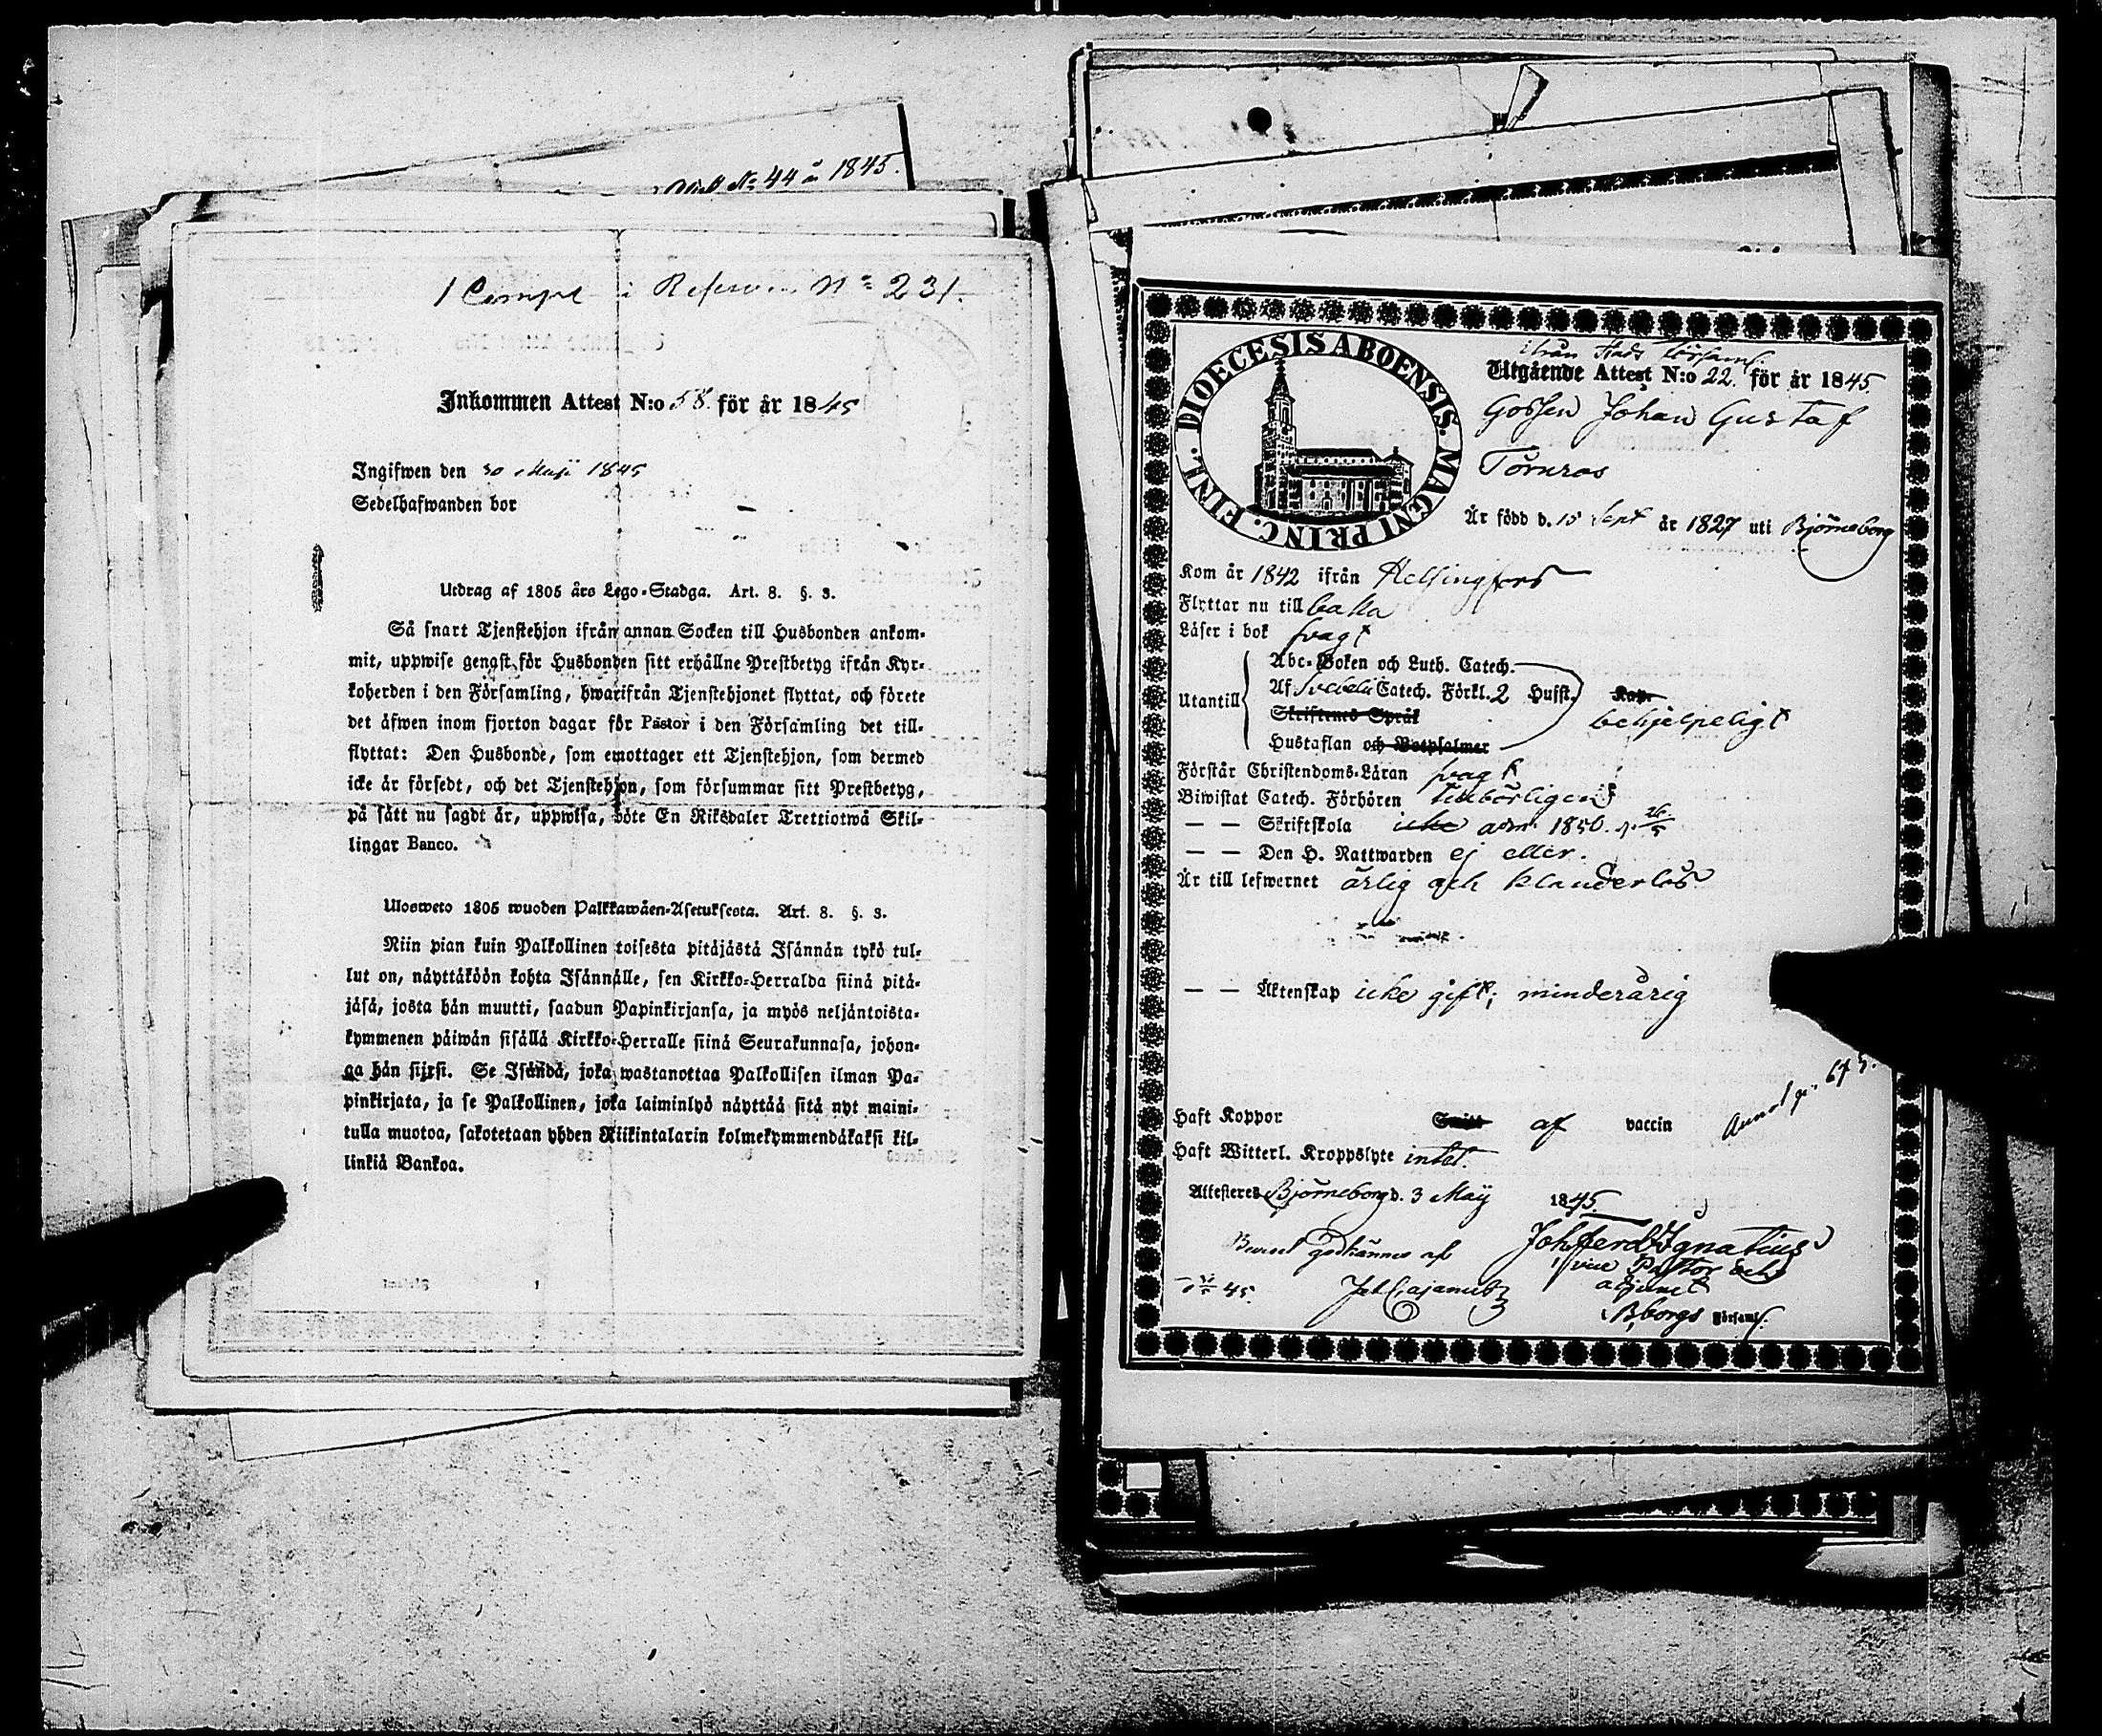 Attest No 44 år 1845.
1 Comp i Reserven No 231.
Inkommen Attest N:o 58. för år 1845
Ingifwen den 30 Maji 1845
Sedelhafwanden bor
Utdrag af 1805 års Lego-Stadga. Art. 8. §. 3.
Så snart Tjenstehjon ifrån annan Socken till Husbonden ankom-
mit, uppwise genast för Husbonden sitt erhållne Prestbetyg ifrån Kyr-
koherden i den Församling, hwarifrån Tjenstehjonet flyttat, och förete
det äfwen inom fjorton dagar för Pastor i den Församling det till-
flyttat: Den Husbonde, som emottager ett Tjenstehjon, som dermed
icke är försedt, och det Tjenstehjon, som försummar sitt Prestbetyg,
på sätt nu sagdt är, uppwisa, böte En Riksdaler Trettiotwå Skil-
lingar Banco.
Ulosweto 1805 wuoden Palkkawäen-Asetuksesta. Art. 8. §. 3.
Niin pian kuin Palkollinen toisesta pitäjästä Isännän tykö tul-
lut on, näyttäköön kohta Isännälle, sen Kirkko-Herralda siinä pitä-
jäsä, josta hän muutti, saadun Papinkirjansa, ja myös neljäntoista-
kymmenen päiwän sisällä Kirkko-Herralle siinä Seurakunnasa, johon-
ga hän siirsi. Se Isändä, joka wastanottaa Palkollisen ilman Pa-
pinkirjata, ja se Palkollinen, joka laiminlyö näyttää sitä nyt maini-
tulla muotoa, sakotetaan yhden Riikintalarin kolmekymmendäkaksi kil-
linkiä Bankoa.
DIOECESIS ABOENSIS. MAGNI PRINC. FINL.
ifrån Stads Församl.
Utgående Attest N:o 22. för år 1845.
Gossen Johan Gustaf
Törnros
Är född d. 15 Sept år 1827 uti Björneborg
Kom år 1842 ifrån Helsingfors
Flyttar nu till baka
Läser i bok svagt
Abc-Boken och Luth. Catech.
Utantill Af Svebelii Catech. Förkl. 2 Hufst. Kap.
Skriftenes Språk behjelpeligt
Hustaflan och Botpsalmer
Förstår Christendoms-Läran svagt
Biwistat Catech. Förhören tillbörligen
— — Skriftskola icke adm. 1850. d. 26/5
— — Den H. Nattwarden ej eller.
Är till lefwernet ärlig och klanderlös
— — Äktenskap icke gift; minderårig
Haft Koppor Smitt af vaccin
Annot. p. 675.
Haft Witterl. Kroppslyte intet.
Attesteres Björneborg d. 3 Maij 1845.
Joh Ferd Ignatius
Beviset godkännes af
vice Pastor och
45. Joh Cajanus
adjunct
B,borgs Församl.